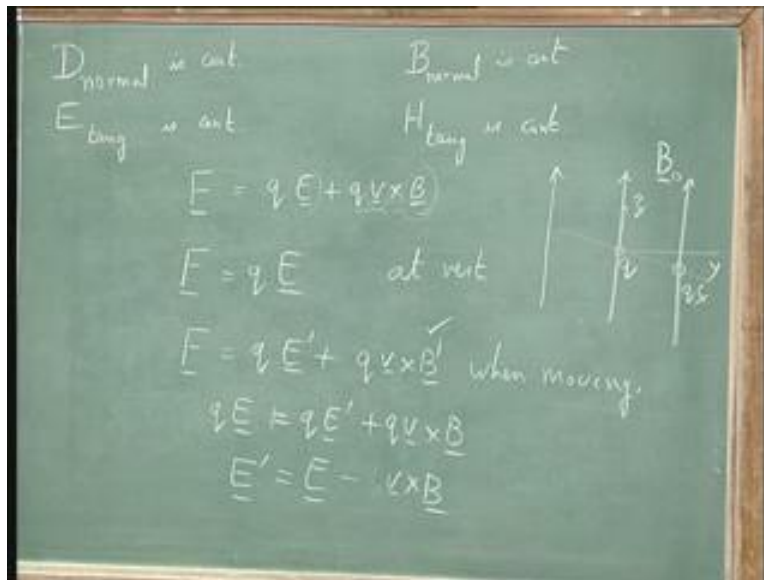 D normal is cont B normal is cont
E tang is cont H tang is cont
F = q E + q v × B
F = q E at rest
F = q E' + q v × B' ✓ when moving.
qE = qE' + qv × B
E' = E - v × B
B₀
z
q
y